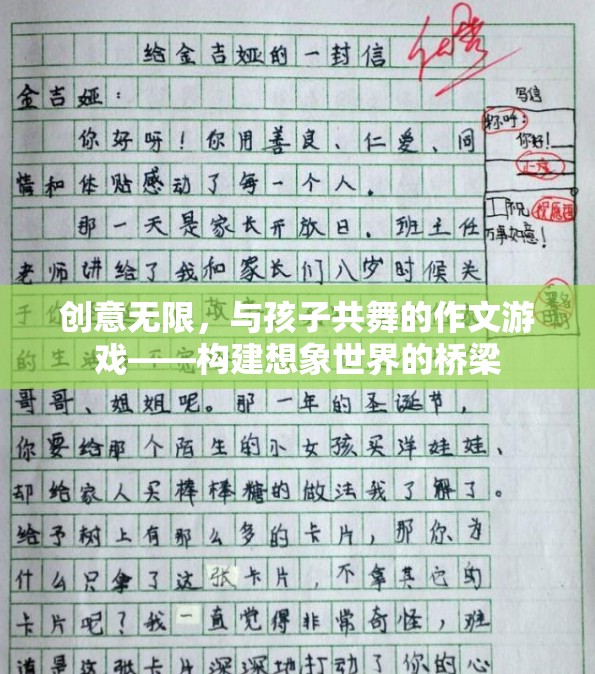 给金吉娅的一封信
金吉娅：
你好呀！你用善良、仁爱、同
情和体贴感动了每一个人。
那一天是家长开放日。班主任
老师讲给了我和家长们八岁时候关
于你
创意无限，与孩子共舞的作文游
戏——构建想象世界的桥梁
的生活
哥哥、姐姐呢。那一年的圣诞节，
你要给那个陌生的小女孩买洋娃娃、
却给家人买棒棒糖的做法我了解了。
给予树上有那么多的卡片，那你为
什么只拿了这张卡片，不拿其它的
卡片呢？我一直觉得非常奇怪，难
道是这张卡片深深地打动了你的心
写信
称呼：
你好！
正文
祝
万事如意！
署名